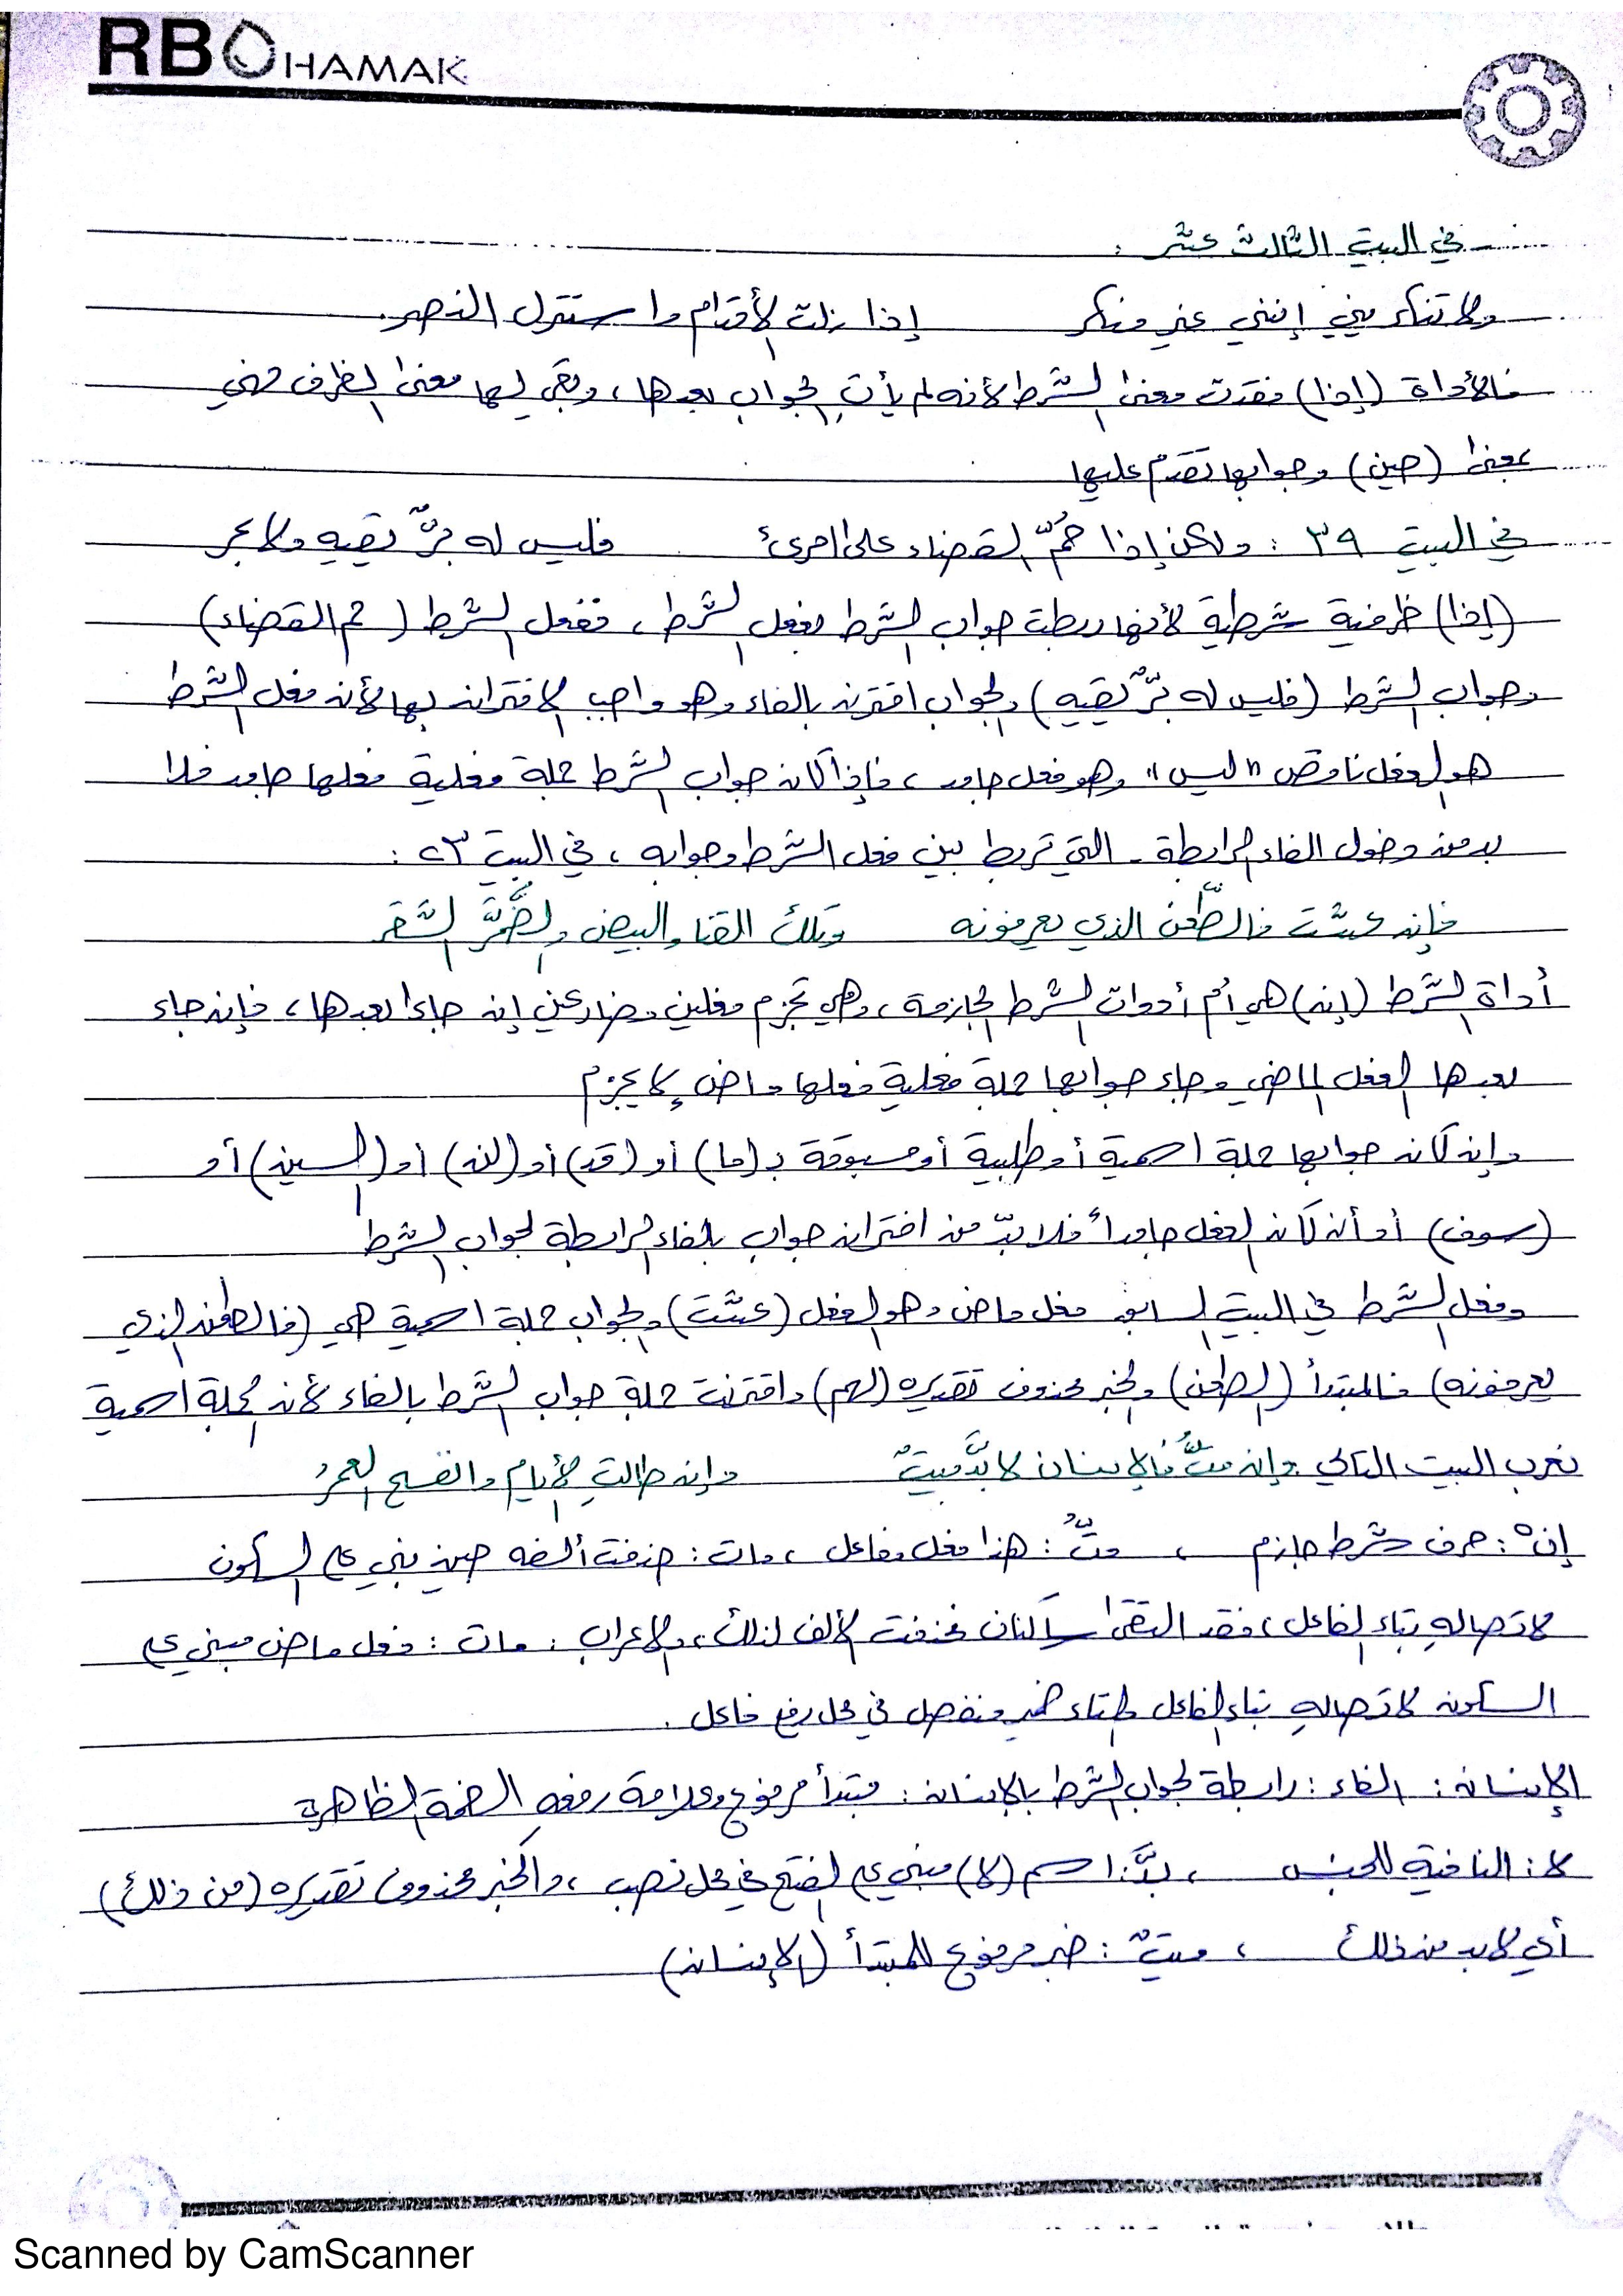 RB HAMAK
في البيت الثالث عشر :
ولا تنكريني إنني غير منكر إذا زلت الأقدام واستنزل النصر
فالأداة (إذا) فقدت معنى الشرط لأنه لم يأتِ الجواب بعدها، وبقي لها معنى الظرف فهي
بمعنى (حين) وجوابها تقدّم عليها
في البيت ٣٩ : ولكن إذا حُمّ القضاء على امرئ فليس له برٌّ يقيه ولا بحر
(إذا) ظرفية شرطية لأنها ربطت جواب الشرط بفعل الشرط، ففعل الشرط (حم القضاء)
وجواب الشرط (فليس له برٌّ يقيه) والجواب اقترن بالفاء وهو واجب الاقتران بها لأن فعل الشرط
هو الفعل ناقص "ليس" وهو فعل جامد، فإذا كان جواب الشرط جملة فعلية فعلها جامد فلا
بد من دخول الفاء الرابطة - التي تربط بين فعل الشرط وجوابه، في البيت ٢٣ :
فإن عشت فالطّعن الذي يعرفونه وتلك القنا والبيض والضُّمَّرُ الشقر
أداة الشرط (إن) هي أم أدوات الشرط الجازمة، وهي تجزم فعلين مضارعين إن جاءا بعدها، فإن جاء
بعدها الفعل الماضي وجاء جوابها جملة فعلية فعلها ماضٍ لا يجزم
وإن كان جوابها جملة اسمية أو طلبية أو مسبوقة بـ (ما) أو (قد) أو (لن) أو (السين) أو
(سوف) أو أن كان الفعل جامداً فلا بدّ من اقتران جواب بالفاء الرابطة لجواب الشرط
وفعل الشرط في البيت السابق فعل ماض وهو الفعل (عشت) والجواب جملة اسمية هي (فالطعن الذي
يعرفونه) فالمبتدأ (الطعن) والخبر محذوف تقديره (لهم) واقترنت جملة جواب الشرط بالفاء لأنه جملة اسمية
نعرب البيت التالي : وإن متُّ فالإنسان لا بدَّ ميتٌ وإن طالتِ الأيام وانفسح العمرُ
إنْ : حرف شرط جازم ، متُّ : هذا فعل وفاعل، مات : حذفت ألفه حين بني على السكون
لاتصالهِ بتاء الفاعل، فقد التقى ساكنان فحذفت الألف لذلك، والإعراب : مات : فعل ماض مبني على
السكون لاتصالهِ بتاء الفاعل والتاء ضمير منفصل في محل رفع فاعل .
الإنسان : الفاء : رابطة لجواب الشرط بالإنسان : مبتدأ مرفوع وعلامة رفعهِ الضمة الظاهرة
لا : النافية للجنس ، بدَّ : اسم (لا) مبني على الفتح في محل نصب، والخبر محذوف تقديره (من ذلك)
أي لا بد من ذلك ، ميتٌ : خبر مرفوع للمبتدأ (الإنسان)
Scanned by CamScanner